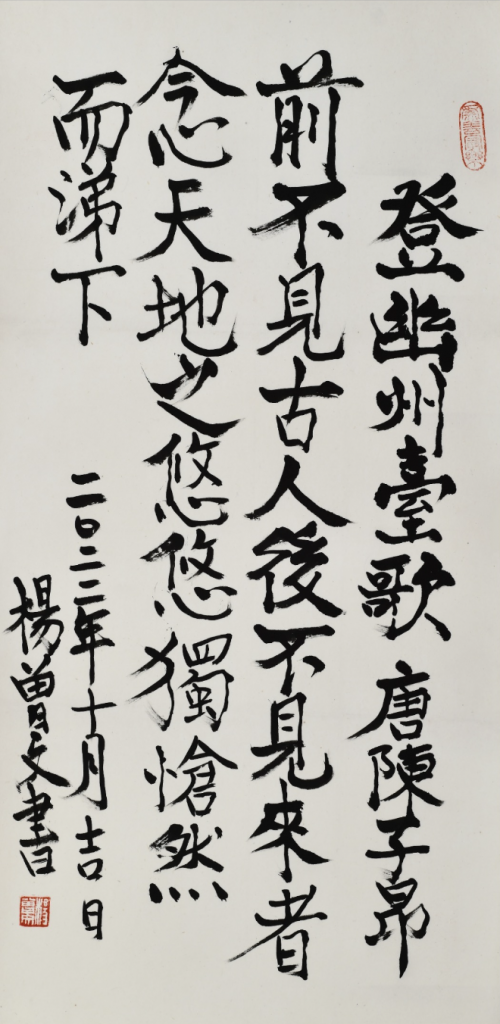 登幽州臺歌 唐陳子昂
前不見古人後不見來者
念天地之悠悠獨愴然
而涕下
二〇二二年十月吉日
楊曾文書